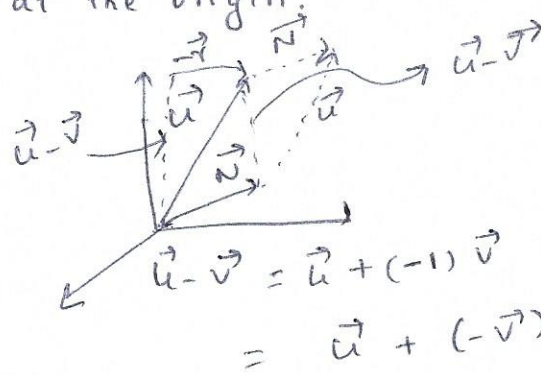 at the origin.
-v⃗ v⃗
u⃗ u⃗ u⃗-v⃗
u⃗-v⃗
v⃗
u⃗-v⃗ = u⃗ + (-1) v⃗
= u⃗ + (-v⃗)